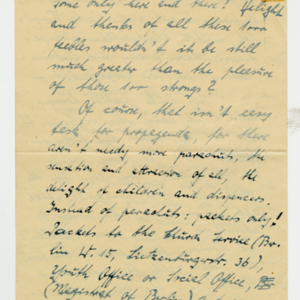 some only here and there! Delight
and thanks of all these 100
feebles wouldn't it be still
much greater than the pleasure
of those 100 strongs?
Of course, that isn't easy
task for propaganda, for there
aren't needy more parachuts, the
sensation and attraction of all, the
delight of children and dispencers.
Instead of parachuts: packets only!
Packets to the Church Service (Ber-
lin W. 15, Lietzenburgerstr. 36),
Youth Office or Social Office,
(Magistrat of Berlin)